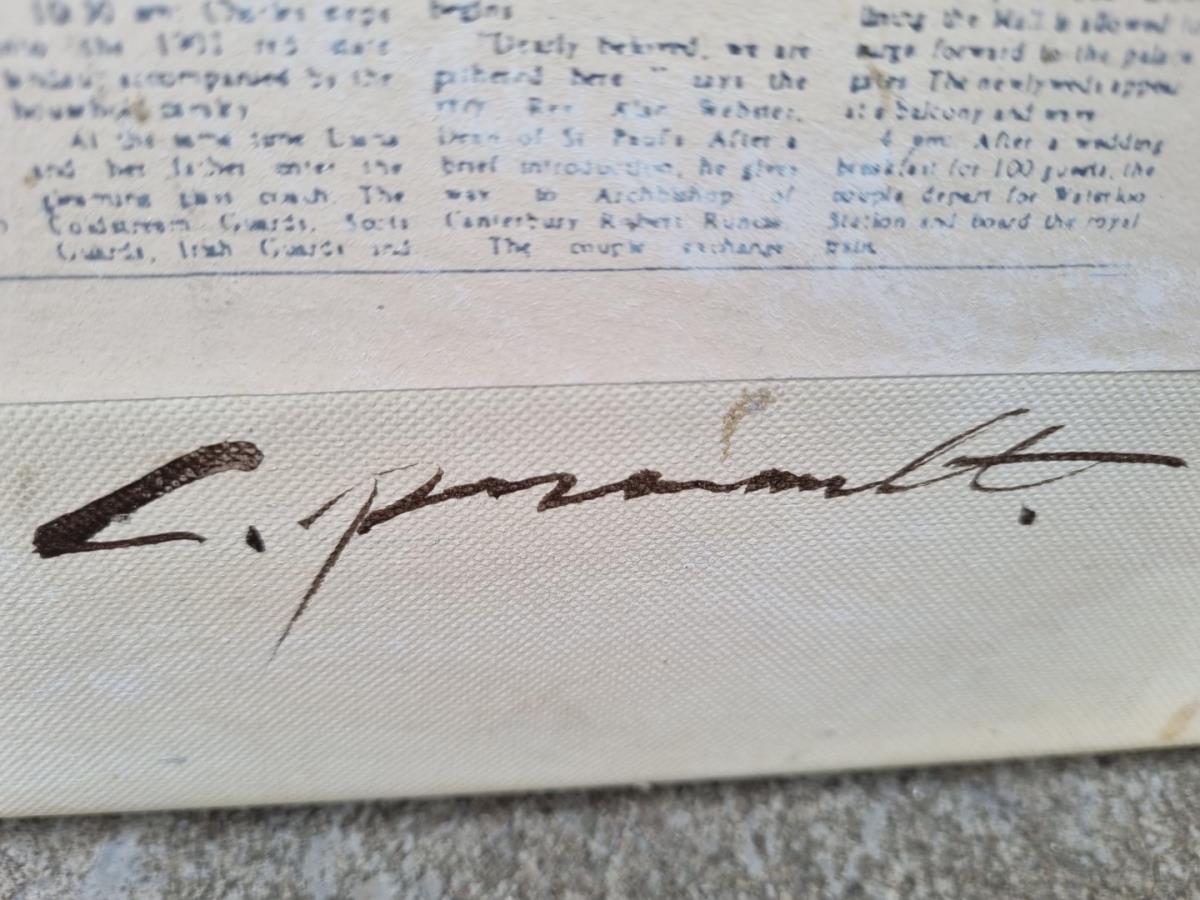 10.30 am: Charles steps
into the 1902 red state
landau, accompanied by the
At the same time Diana
and her father enter the
gleaming glass coach. The
Coldstream Guards, Scots
Guards, Irish Guards and
begins
"Dearly beloved, we are
gathered here " says the
very Rev Alan Webster,
Dean of St Paul's After a
brief introduction, he gives
way to Archbishop of
Canterbury Robert Runcie
The couple exchange
lining the Mall is allowed to
surge forward to the palace
gates. The newlyweds appear
at a balcony and wave
4 pm: After a wedding
breakfast for 100 guests, the
couple depart for Waterloo
Station and board the royal
train.
C.